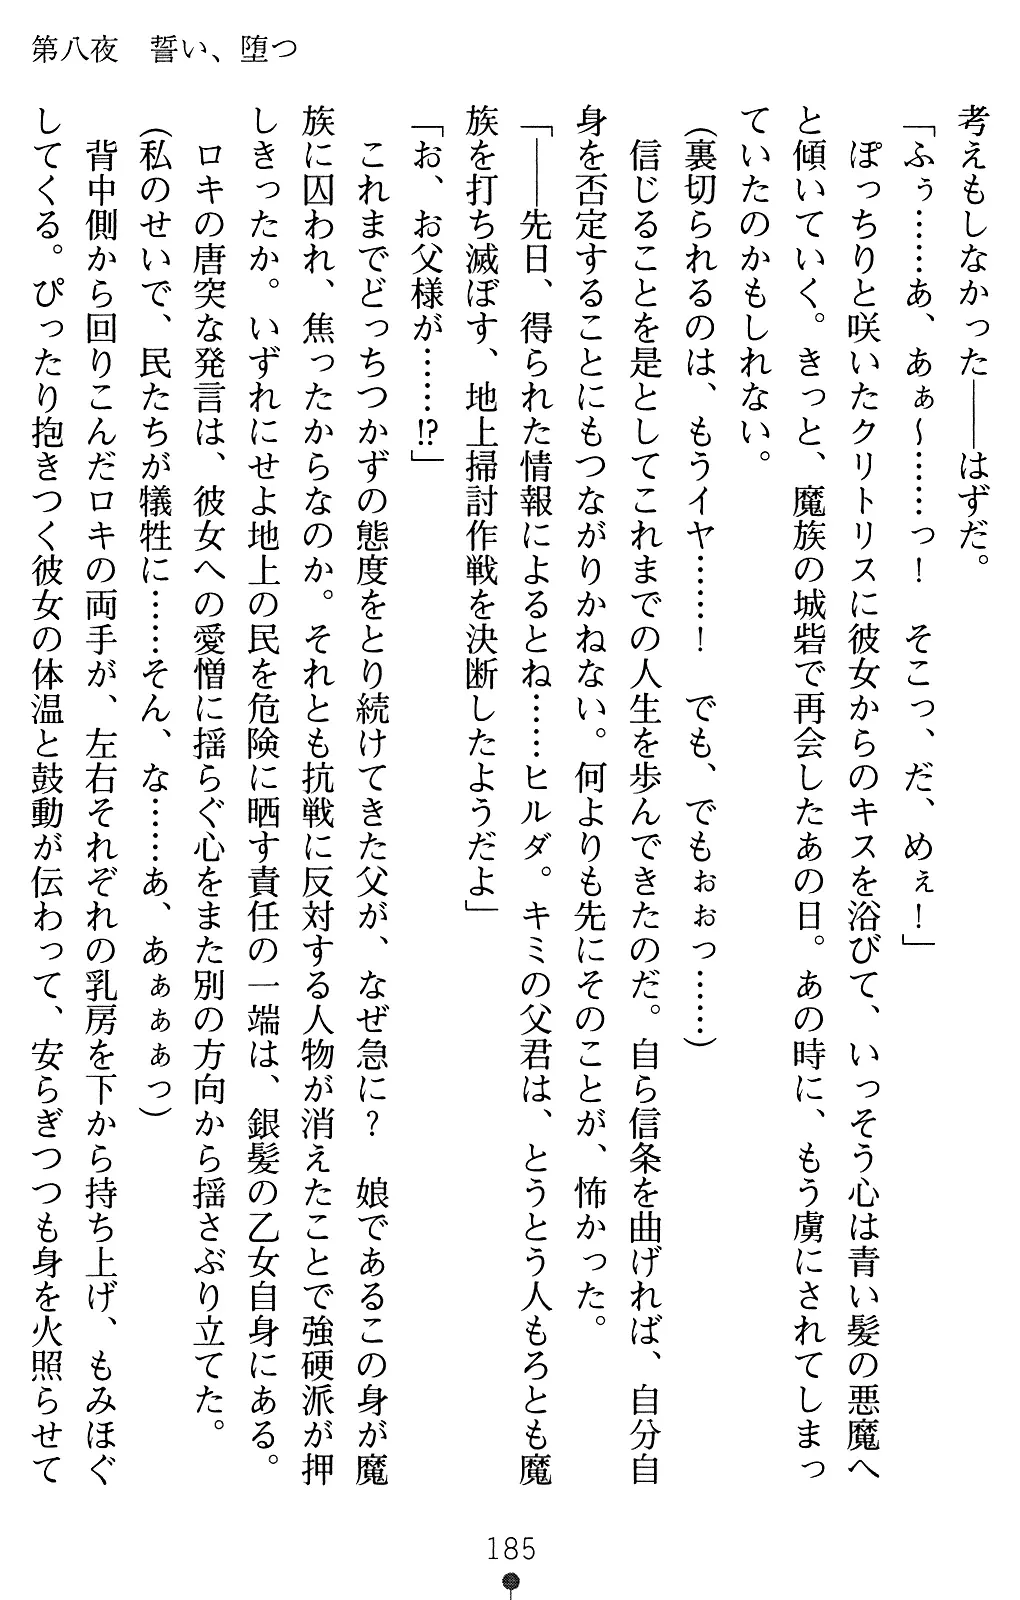 第八夜　誓い、堕つ
考えもしなかった――はずだ。
「ふぅ……あ、あぁ～……っ！　そこっ、だ、めぇ！」
　ぽっちりと咲いたクリトリスに彼女からのキスを浴びて、いっそう心は青い髪の悪魔へ
と傾いていく。きっと、魔族の城砦で再会したあの日。あの時に、もう虜にされてしまっ
ていたのかもしれない。
（裏切られるのは、もうイヤ……！　でも、でもぉぉっ……）
　信じることを是としてこれまでの人生を歩んできたのだ。自ら信条を曲げれば、自分自
身を否定することにもつながりかねない。何よりも先にそのことが、怖かった。
「――先日、得られた情報によるとね……ヒルダ。キミの父君は、とうとう人もろとも魔
族を打ち滅ぼす、地上掃討作戦を決断したようだよ」
「お、お父様が……!?」
　これまでどっちつかずの態度をとり続けてきた父が、なぜ急に？　娘であるこの身が魔
族に囚われ、焦ったからなのか。それとも抗戦に反対する人物が消えたことで強硬派が押
しきったか。いずれにせよ地上の民を危険に晒す責任の一端は、銀髪の乙女自身にある。
　ロキの唐突な発言は、彼女への愛憎に揺らぐ心をまた別の方向から揺さぶり立てた。
（私のせいで、民たちが犠牲に……そん、な……あ、あぁぁぁっ）
　背中側から回りこんだロキの両手が、左右それぞれの乳房を下から持ち上げ、もみほぐ
してくる。ぴったり抱きつく彼女の体温と鼓動が伝わって、安らぎつつも身を火照らせて
185